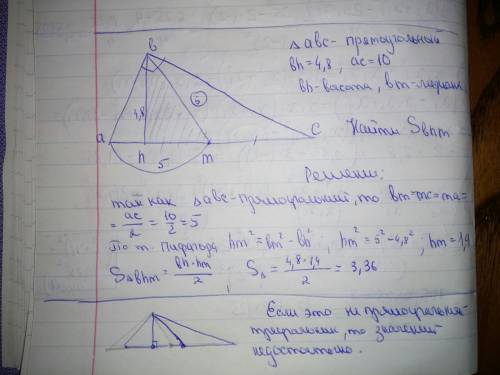 в
△abc - прямоугольный
bh=4,8, ac=10
bh-высота, bm-медиана
4,8
5
a
h
m
c
5
Найти Sbhm
Решение:
так как △abc-прямоугольный, то bm=mc=ma=
= ac/2 = 10/2 = 5
По т. Пифагора hm²=bm²-bh², hm²=5²-4,8², hm=1,4
S△bhm = bh·hm/2, S△ = 4,8·1,4/2 = 3,36
Если это не прямоугольный
треугольник, то значений
недостаточно.